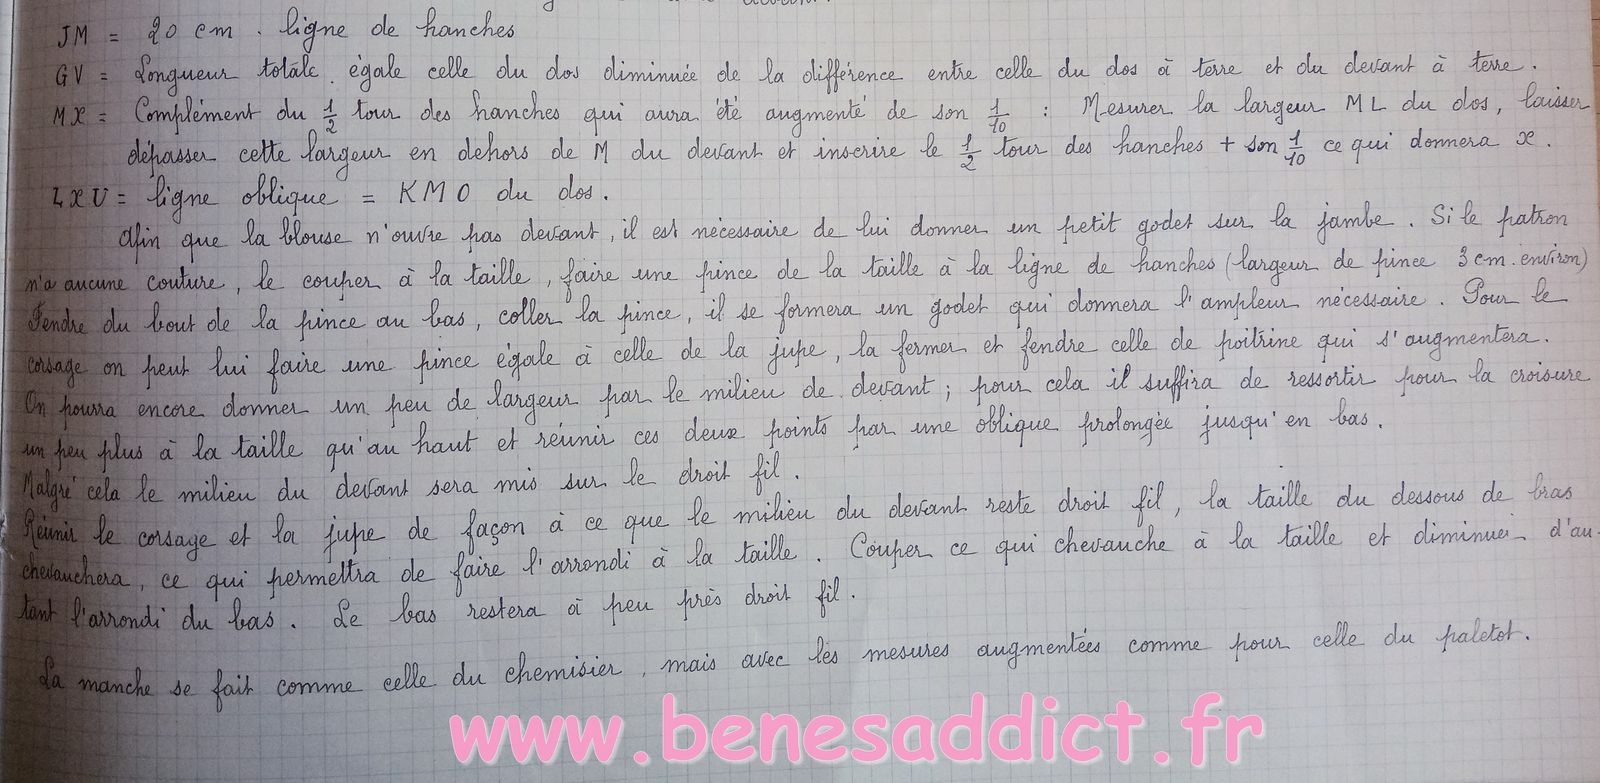 JM = 20 cm. ligne de hanches
GV = Longueur totale égale celle du dos diminuée de la différence entre celle du dos à terre et du devant à terre.
MX = Complément du 1/2 tour des hanches qui aura été augmenté de son 1/10 : Mesurer la largeur ML du dos, laisser
dépasser cette largeur en dehors de M du devant et inscrire le 1/2 tour des hanches + son 1/10 ce qui donnera x.
LXU = ligne oblique = KMO du dos.
Afin que la blouse n'ouvre pas devant, il est nécessaire de lui donner un petit godet sur la jambe. Si le patron
n'a aucune couture, le couper à la taille, faire une pince de la taille à la ligne de hanches (largeur de pince 3 cm. environ)
Fendre du bout de la pince au bas, coller la pince, il se formera un godet qui donnera l'ampleur nécessaire. Pour le
corsage on peut lui faire une pince égale à celle de la jupe, la fermer et fendre celle de poitrine qui s'augmentera.
On pourra encore donner un peu de largeur par le milieu de devant ; pour cela il suffira de ressortir pour la croisure
un peu plus à la taille qu'au haut et réunir ces deux points par une oblique prolongée jusqu'en bas.
Malgré cela le milieu du devant sera mis sur le droit fil.
Réunir le corsage et la jupe de façon à ce que le milieu du devant reste droit fil, la taille du dessous de bras
chevauchera, ce qui permettra de faire l'arrondi à la taille. Couper ce qui chevauche à la taille et diminuer d'au-
tant l'arrondi du bas. Le bas restera à peu près droit fil.
La manche se fait comme celle du chemisier, mais avec les mesures augmentées comme pour celle du paletot.
www.benesaddict.fr